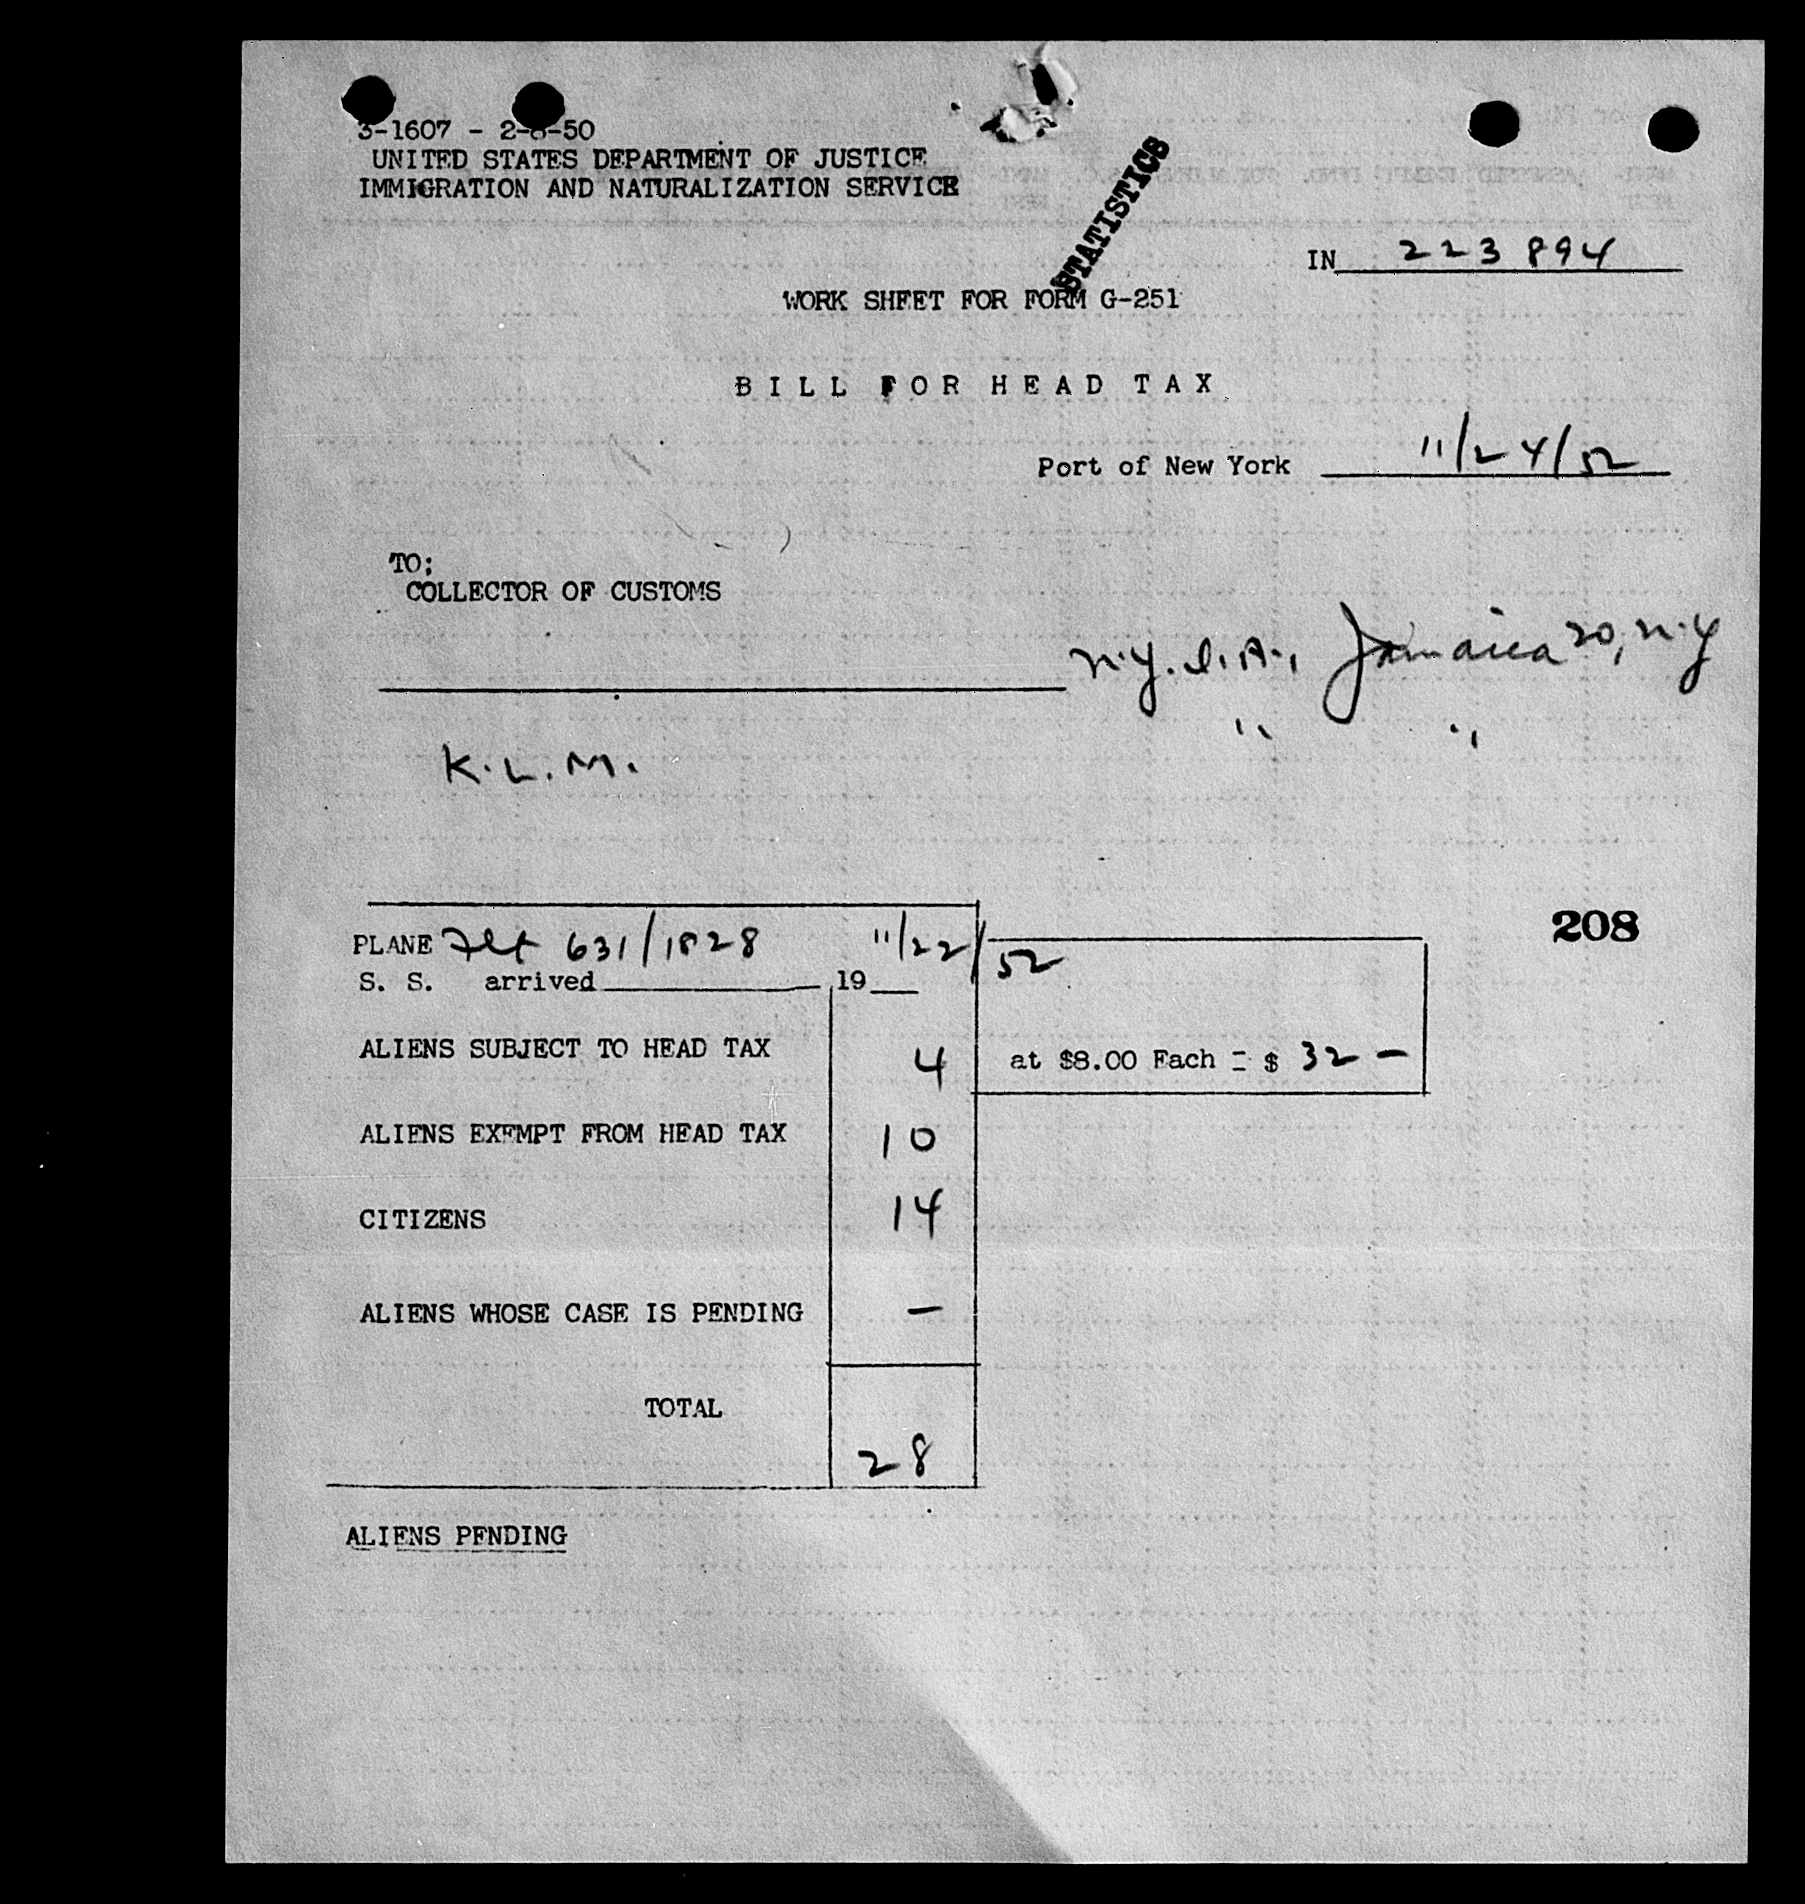 3-1607 - 2-8-50
UNITED STATES DEPARTMENT OF JUSTICE
IMMIGRATION AND NATURALIZATION SERVICE
STATISTICS
IN 223894
WORK SHEET FOR FORM G-251
BILL FOR HEAD TAX
Port of New York 11/24/52
TO:
COLLECTOR OF CUSTOMS
N.Y.I.A., Jamaica 20, N.Y
" "
K.L.M.
208
PLANE Flt 631/1828 11/22/52
S. S. arrived 19
ALIENS SUBJECT TO HEAD TAX 4 at $8.00 Each = $ 32 -
ALIENS EXEMPT FROM HEAD TAX 10
CITIZENS 14
ALIENS WHOSE CASE IS PENDING -
TOTAL
28
ALIENS PENDING